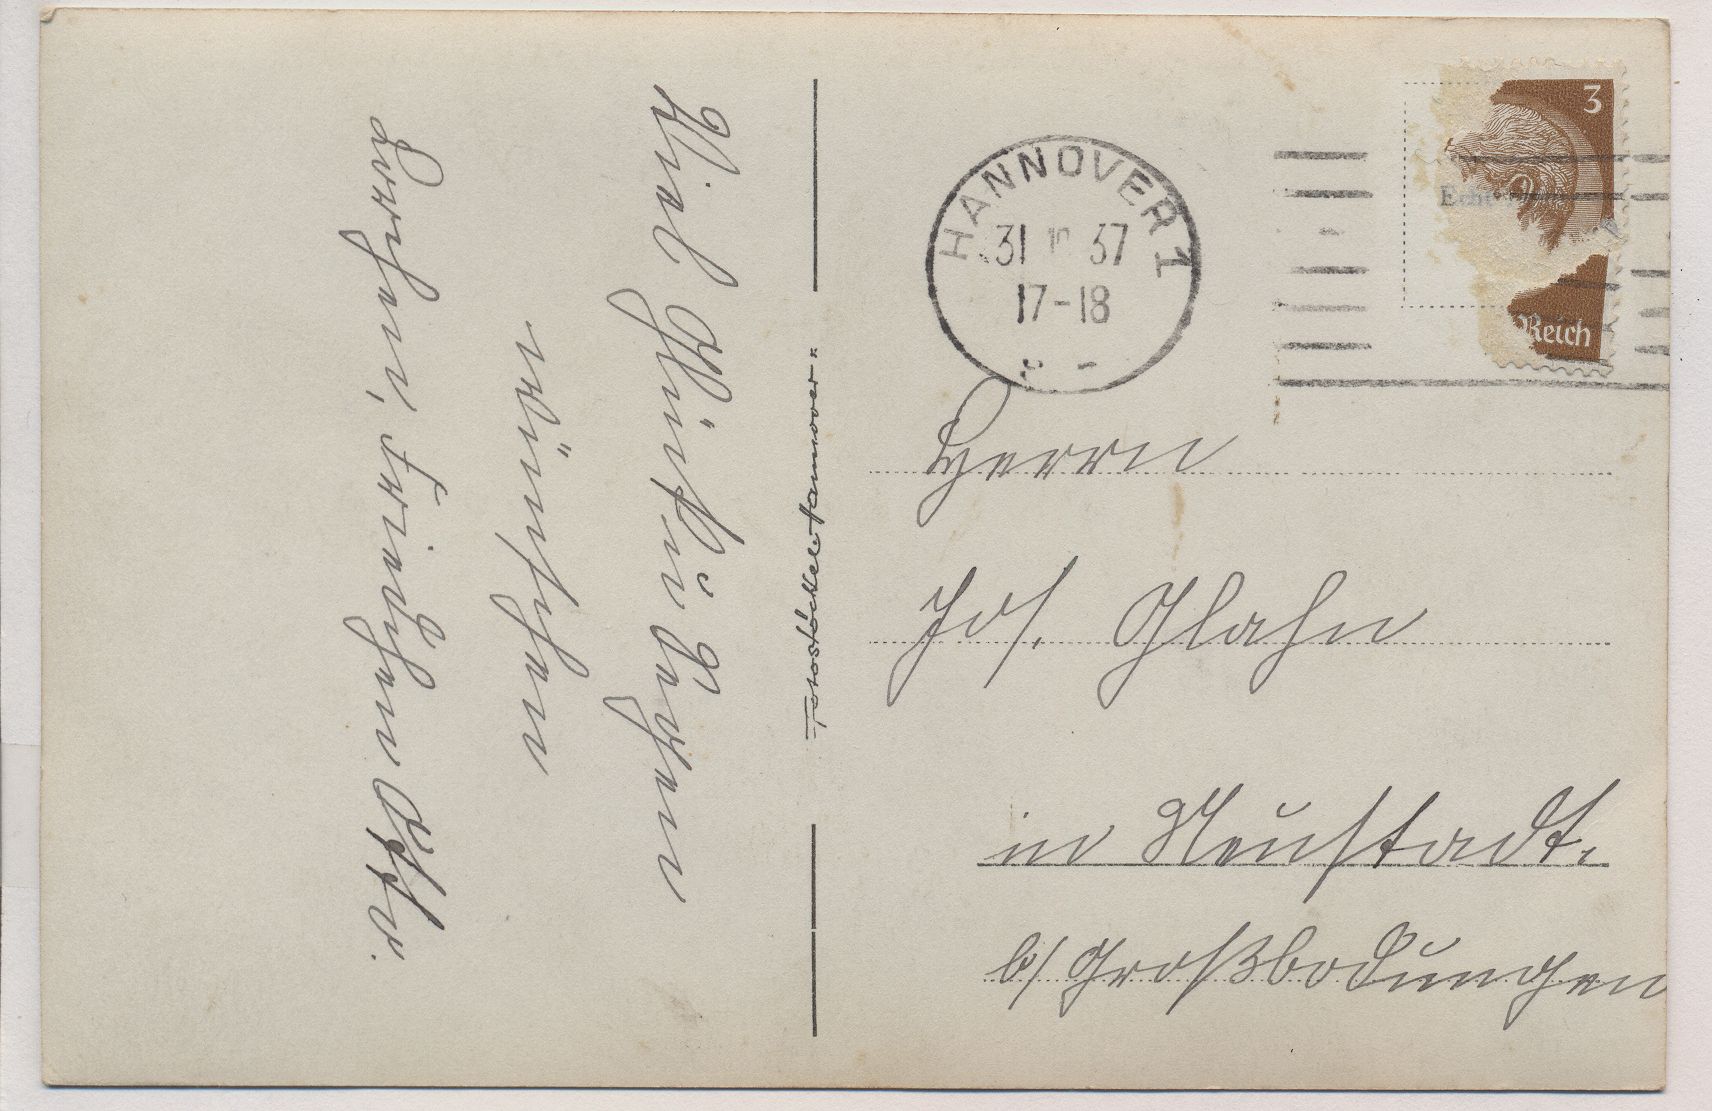 Viel Glück u. Segen
wünschen
HANNOVER 1
31 10 37
17-18
3
Echt
Reich
Herrn
Jos. Glahn
in Neustadt.
b/ Großbodungen
Fotostöckel-Hannover